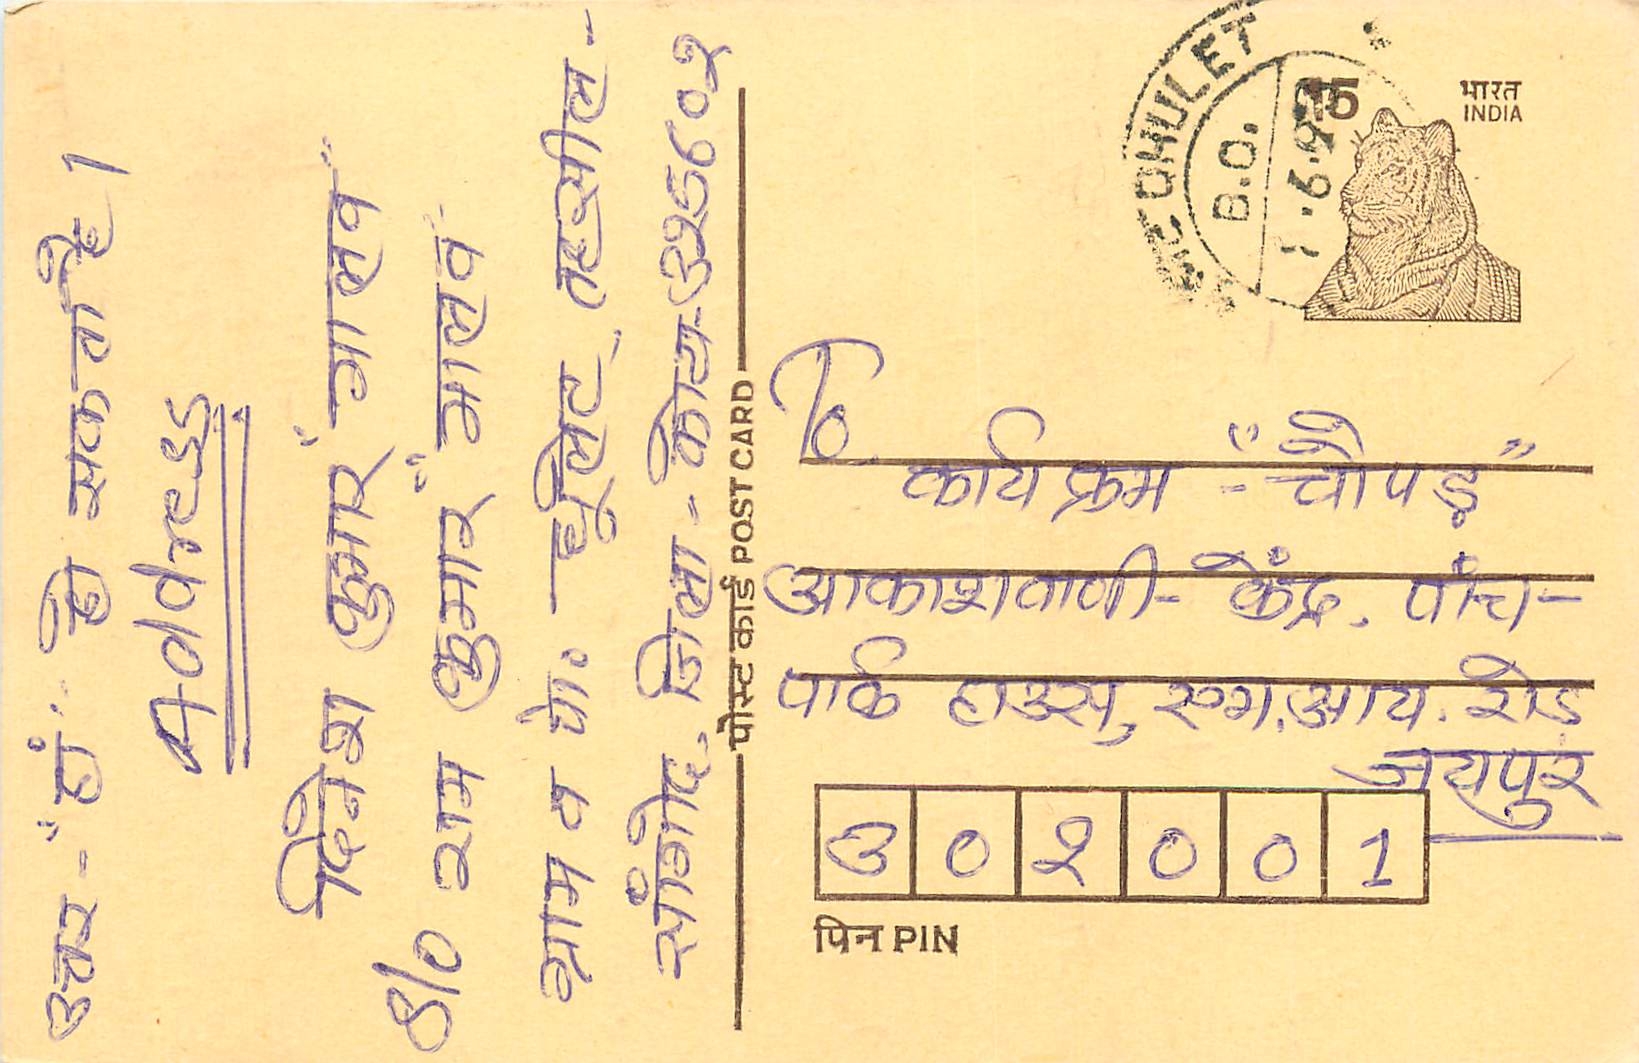 उत्तर - "हां" हो सकता है ।
Address
दिनेश कुमार "मालव"
S/O राम कुमार "मालव"
ग्राम व पो. धूलेट, तहसील -
सांगोद, जिला - कोटा - ३२५६०२
पोस्ट कार्ड POST CARD
DHULET
B.O.
15
भारत
INDIA
To
कार्यक्रम - "चौपड़"
आकाशवाणी - केंद्र, पांच -
पार्क हाउस, एम.आय. रोड
जयपुर
३०२००1
पिन PIN